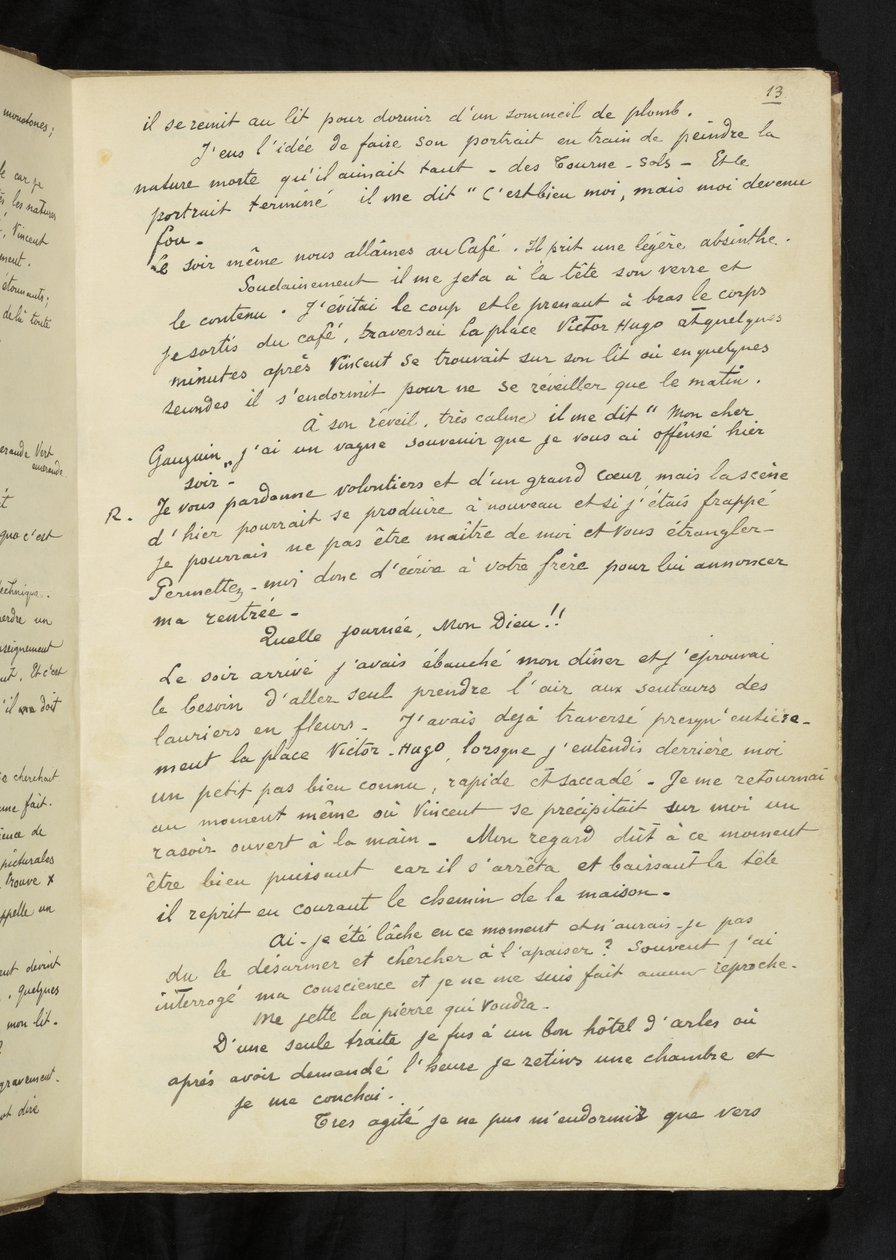 monotones;
le car je
les natures
, Vincent
ment.
étonnants;
de là toute
eraude Vert
emeraude
et
que c'est
technique.
perdre un
nseignement
nt. Et c'est
'il doit
e cherchait
une fait.
ience de
picturales
trouve x
appelle un
aut devint
. Quelques
mon lit.
?
gravement.
ot dire
13
il se remit au lit pour dormir d'un sommeil de plomb.
J'eus l'idée de faire son portrait en train de peindre la
nature morte qu'il aimait tant - des Tourne-Sols - Et le
portrait terminé il me dit " C'est bien moi, mais moi devenu
fou -
Le soir même nous allâmes au Café. Il prit une légère absinthe.
Soudainement il me jeta à la tête son verre et
le contenu. J'évitai le coup et le prenant à bras le corps
je sortis du café, traversai la place Victor Hugo et quelques
minutes après Vincent se trouvait sur son lit où en quelques
secondes il s'endormit pour ne se réveiller que le matin.
A son réveil, très calme, il me dit " Mon cher
Gauguin, j'ai un vague souvenir que je vous ai offensé hier
soir "-
R. Je vous pardonne volontiers et d'un grand cœur, mais la scène
d'hier pourrait se produire à nouveau et si j'étais frappé
je pourrais ne pas être maître de moi et vous étrangler -
Permettez-moi donc d'écrire à votre frère pour lui annoncer
ma rentrée -
Quelle journée, Mon Dieu!!
Le soir arrivé j'avais ébauché mon dîner et j'éprouvai
le besoin d'aller seul prendre l'air aux senteurs des
lauriers en fleurs. J'avais dejà traversé presqu'entière-
ment la place Victor-Hugo, lorsque j'entendis derrière moi
un petit pas bien connu, rapide et saccadé - Je me retournai
au moment même où Vincent se précipitait sur moi un
rasoir ouvert à la main - Mon regard dût à ce moment
être bien puissant car il s'arrêta et baissant la tête
il reprit en courant le chemin de la maison -
Ai-je été lâche en ce moment et n'aurais-je pas
du le désarmer et chercher à l'apaiser? Souvent j'ai
interrogé ma conscience et je ne me suis fait aucun reproche.
Me jette la pierre qui voudra -
D'une seule traite je fus à un bon hôtel d'arles où
après avoir demandé l'heure je retins une chambre et
je me couchai.
Tres agité je ne pus m'endormir que vers